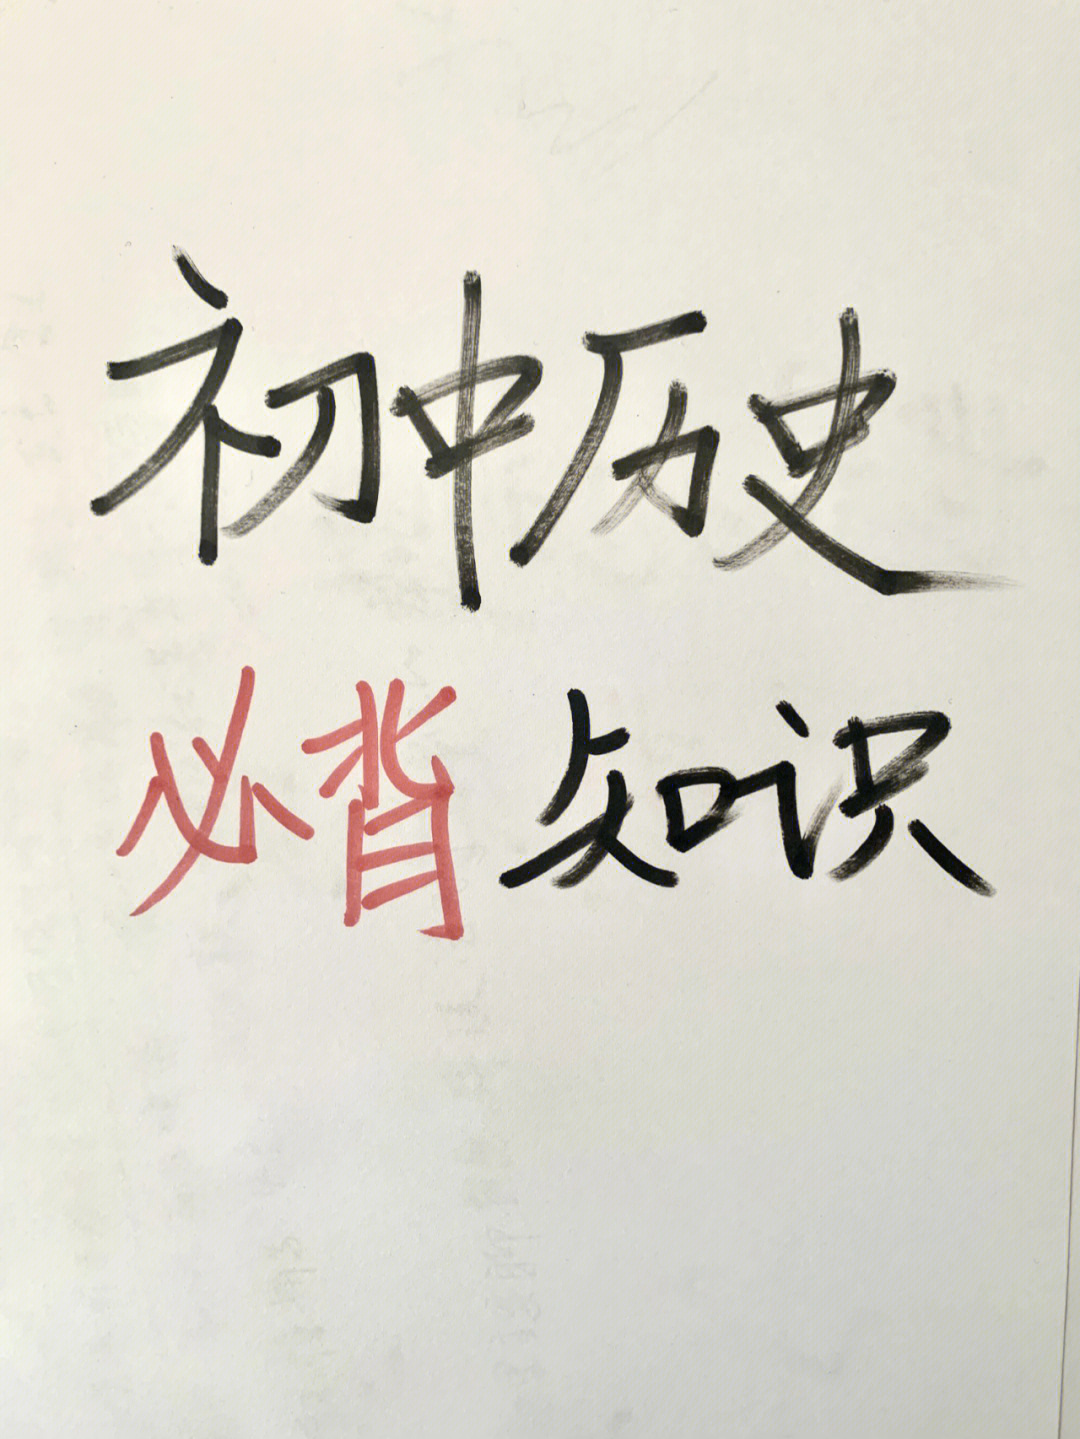 初中历史
必背知识